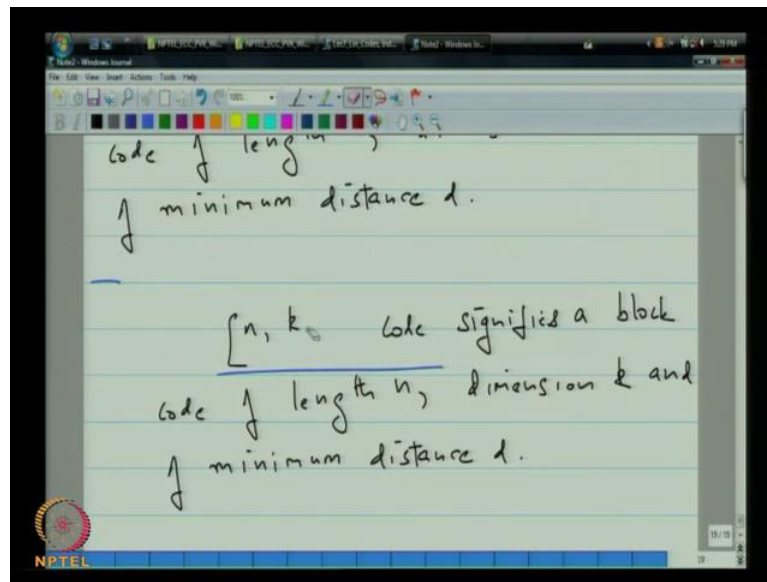 Note2 - Windows Journal
File Edit View Insert Actions Tools Help
100%
code of length
of minimum distance d.
[n, k code signifies a block
code of length n, dimension k and
of minimum distance d.
15/15
NPTEL